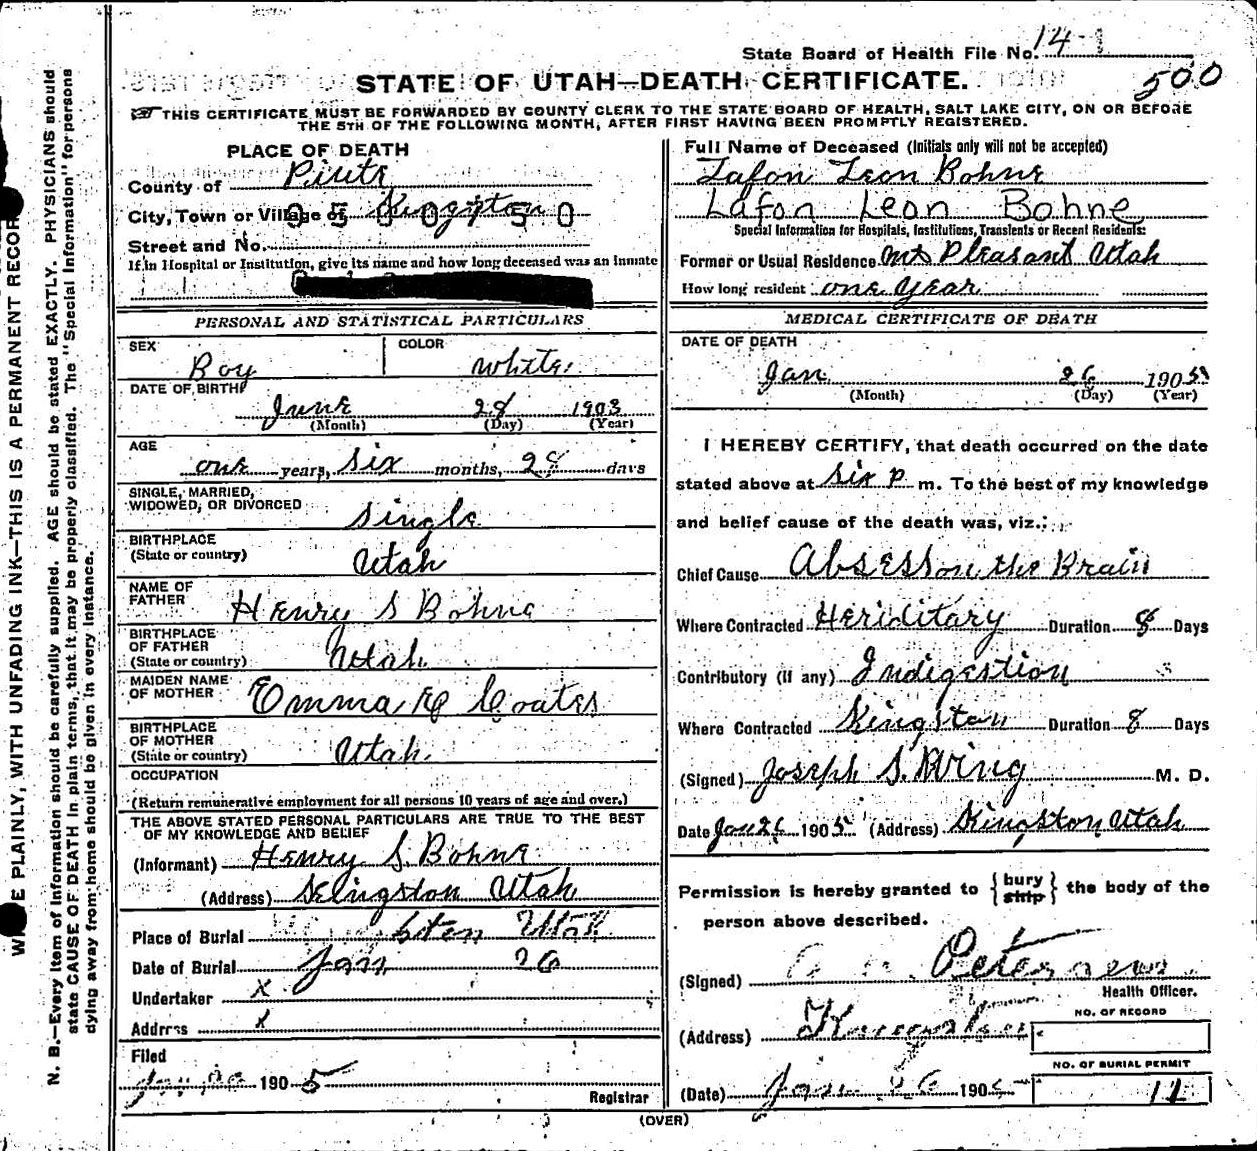 State Board of Health File No. 14-1
STATE OF UTAH—DEATH CERTIFICATE.
500
THIS CERTIFICATE MUST BE FORWARDED BY COUNTY CLERK TO THE STATE BOARD OF HEALTH, SALT LAKE CITY, ON OR BEFORE
THE 5TH OF THE FOLLOWING MONTH, AFTER FIRST HAVING BEEN PROMPTLY REGISTERED.
PLACE OF DEATH
County of Piute
City, Town or Village of Kingston
Street and No.
If in Hospital or Institution, give its name and how long deceased was an inmate
PERSONAL AND STATISTICAL PARTICULARS
SEX Boy
COLOR White
DATE OF BIRTH
June 28 1903
(Month) (Day) (Year)
AGE
one years, six months, 28 days
SINGLE, MARRIED,
WIDOWED, OR DIVORCED single
BIRTHPLACE
(State or country) Utah
NAME OF
FATHER Henry S Bohne
BIRTHPLACE
OF FATHER
(State or country) Utah
MAIDEN NAME
OF MOTHER Emma E Coates
BIRTHPLACE
OF MOTHER
(State or country) Utah
OCCUPATION
(Return remunerative employment for all persons 10 years of age and over.)
THE ABOVE STATED PERSONAL PARTICULARS ARE TRUE TO THE BEST
OF MY KNOWLEDGE AND BELIEF
(Informant) Henry S. Bohne
(Address) Kingston Utah
Place of Burial Utah
Date of Burial Jan 26
Undertaker X
Address X
Filed
190 5
Registrar
Full Name of Deceased (Initials only will not be accepted)
Lafon Leon Bohne
Lafon Leon Bohne
Special Information for Hospitals, Institutions, Transients or Recent Residents:
Former or Usual Residence Mt Pleasant Utah
How long resident one year
MEDICAL CERTIFICATE OF DEATH
DATE OF DEATH
Jan 26 1905
(Month) (Day) (Year)
I HEREBY CERTIFY, that death occurred on the date
stated above at six P m. To the best of my knowledge
and belief cause of the death was, viz.:
Chief Cause Absess on the Brain
Where Contracted Heriditary Duration 8 Days
Contributory (if any) Indigestion
Where Contracted Kingston Duration 8 Days
(Signed) Joseph S. Wing M. D.
Date Jan 26 1905 (Address) Kingston Utah
Permission is hereby granted to {bury ship} the body of the
person above described.
(Signed) Petersen
Health Officer.
(Address) Kingston
NO. OF RECORD
NO. OF BURIAL PERMIT
(Date) Jan 26 1905 11
(OVER)
N. B.—Every item of information should be carefully supplied. AGE should be stated EXACTLY. PHYSICIANS should
state CAUSE OF DEATH in plain terms, that it may be properly classified. The "Special Information" for persons
dying away from home should be given in every instance.
PLAINLY, WITH UNFADING INK—THIS IS A PERMANENT RECOR